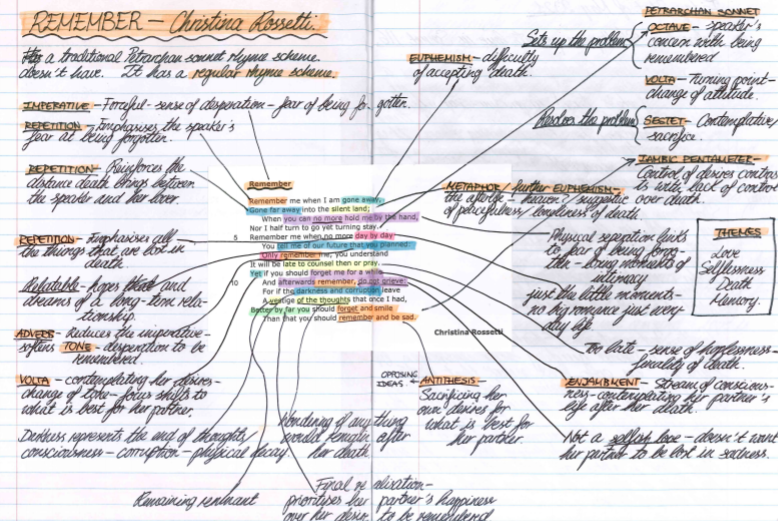 REMEMBER - Christina Rossetti.
a traditional Petrarchan sonnet rhyme scheme.
doesn't have. It has a regular rhyme scheme.
IMPERATIVE - Forceful - sense of desperation - fear of being forgotten.
REPETITION - Emphasises the speaker's
fear at being forgotten.
REPETITION - Reinforces the
distance death brings between
the speaker and her lover.
REPETITION - Emphasises all
the things that are lost in
death.
Relatable - hopes and
dreams of a long-term rela-
tionship.
ADVERB - Reduces the imperative -
softens TONE - desperation to be
remembered.
VOLTA - contemplating her desires -
change of tone - focus shifts to
what is best for her partner.
Darkness represents the end of thoughts/
consciousness - corruption - physical decay.
Remaining remnant
Wondering if anything
would remain after
her death.
Final realisation -
prioritises her partner's happiness
over her desire to be remembered.
Remember
Remember me when I am gone away,
Gone far away into the silent land;
When you can no more hold me by the hand,
Nor I half turn to go yet turning stay.
5 Remember me when no more day by day
You tell me of our future that you planned:
Only remember me; you understand
It will be late to counsel then or pray.
Yet if you should forget me for a while
10 And afterwards remember, do not grieve:
For if the darkness and corruption leave
A vestige of the thoughts that once I had,
Better by far you should forget and smile
Than that you should remember and be sad.
Christina Rossetti
EUPHEMISM - difficulty
of accepting death.
METAPHOR / further EUPHEMISM -
the afterlife - heaven / suggestive
of peacefulness / loneliness of death.
Physical separation links
to fear of being forgot-
ten - loving moments of
intimacy
just the little moments -
no big romance just every-
day life
Too late - sense of hopelessness -
finality of death.
OPPOSING
IDEAS
ANTITHESIS -
Sacrificing her
own desires for
what is best for
her partner.
ENJAMBMENT - Stream of conscious-
ness - contemplating her partner's
life after her death.
Not a selfish love - doesn't want
her partner to be lost in sadness.
PETRARCHAN SONNET
Sets up the problem
OCTAVE - speaker's
concern with being
remembered
VOLTA - Turning point -
change of attitude.
Resolves the problem
SESTET - Contemplative/
sacrifice.
IAMBIC PENTAMETER -
Control of desires contras
ts with lack of control
over death.
THEMES
Love
Selflessness
Death
Memory.